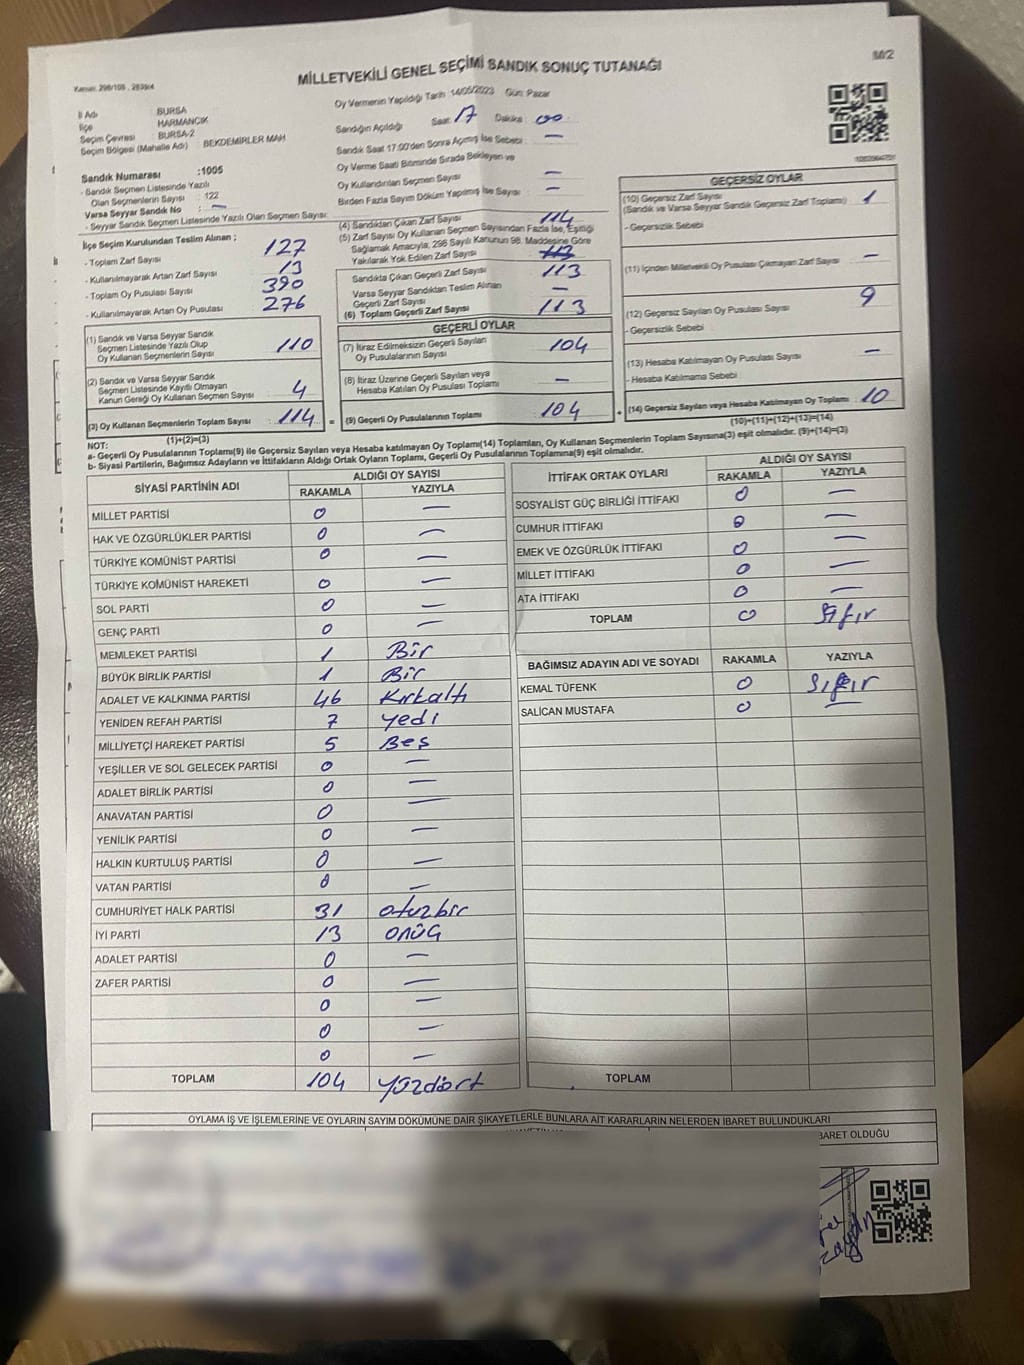 M/2
MİLLETVEKİLİ GENEL SEÇİMİ SANDIK SONUÇ TUTANAĞI
Oy Vermenin Yapıldığı Tarih :14/05/2023 Gün: Pazar
İl Adı BURSA
İlçe HARMANCIK
Seçim Çevresi BURSA-2
Seçim Bölgesi (Mahalle Adı) BEKDEMİRLER MAH
Sandığın Açıldığı Saat: 17 Dakika 00
Sandık Saat 17.00'den Sonra Açılmış İse Sebebi : —
Oy Verme Saati Bitiminde Sırada Bekleyen ve
Oy Kullandırılan Seçmen Sayısı —
Birden Fazla Sayım Döküm Yapılmış İse Sayısı : —
Sandık Numarası :1005
- Sandık Seçmen Listesinde Yazılı
Olan Seçmenlerin Sayısı : 122
Varsa Seyyar Sandık No : —
- Seyyar Sandık Seçmen Listesinde Yazılı Olan Seçmen Sayısı:
İlçe Seçim Kurulundan Teslim Alınan ;
- Toplam Zarf Sayısı 127
- Kullanılmayarak Artan Zarf Sayısı 13
- Toplam Oy Pusulası Sayısı 390
- Kullanılmayarak Artan Oy Pusulası 276
(1) Sandık ve Varsa Seyyar Sandık
Seçmen Listesinde Yazılı Olup
Oy Kullanan Seçmenlerin Sayısı 110
(2) Sandık ve Varsa Seyyar Sandık
Seçmen Listesinde Kayıtlı Olmayan
Kanun Gereği Oy Kullanan Seçmen Sayısı 4
(3) Oy Kullanan Seçmenlerin Toplam Sayısı 114
(1)+(2)=(3)
(4) Sandıktan Çıkan Zarf Sayısı 114
(5) Zarf Sayısı Oy Kullanan Seçmen Sayısından Fazla İse, Eşitliği
Sağlamak Amacıyla, 298 Sayılı Kanunun 98. Maddesine Göre
Yakılarak Yok Edilen Zarf Sayısı 113
Sandıkta Çıkan Geçerli Zarf Sayısı 113
Varsa Seyyar Sandıktan Teslim Alınan
Geçerli Zarf Sayısı —
(6) Toplam Geçerli Zarf Sayısı 113
GEÇERLİ OYLAR
(7) İtiraz Edilmeksizin Geçerli Sayılan
Oy Pusulalarının Sayısı 104
(8) İtiraz Üzerine Geçerli Sayılan veya
Hesaba Katılan Oy Pusulası Toplamı —
= (9) Geçerli Oy Pusulalarının Toplamı 104
GEÇERSİZ OYLAR
(10) Geçersiz Zarf Sayısı
(Sandık ve Varsa Seyyar Sandık Geçersiz Zarf Toplamı) 1
- Geçersizlik Sebebi
(11) İçinden Milletvekili Oy Pusulası Çıkmayan Zarf Sayısı —
(12) Geçersiz Sayılan Oy Pusulası Sayısı 9
- Geçersizlik Sebebi
(13) Hesaba Katılmayan Oy Pusulası Sayısı —
- Hesaba Katılmama Sebebi
+ (14) Geçersiz Sayılan veya Hesaba Katılmayan Oy Toplamı 10
(10)+(11)+(12)+(13)=(14)
NOT:
a- Geçerli Oy Pusulalarının Toplamı(9) ile Geçersiz Sayılan veya Hesaba katılmayan Oy Toplamı(14) Toplamları, Oy Kullanan Seçmenlerin Toplam Sayısına(3) eşit olmalıdır. (9)+(14)=(3)
b- Siyasi Partilerin, Bağımsız Adayların ve İttifakların Aldığı Ortak Oyların Toplamı, Geçerli Oy Pusulalarının Toplamına(9) eşit olmalıdır.
SİYASİ PARTİNİN ADI ALDIĞI OY SAYISI
RAKAMLA YAZIYLA
MİLLET PARTİSİ 0 —
HAK VE ÖZGÜRLÜKLER PARTİSİ 0 —
TÜRKİYE KOMÜNİST PARTİSİ 0 —
TÜRKİYE KOMÜNİST HAREKETİ 0 —
SOL PARTİ 0 —
GENÇ PARTİ 0 —
MEMLEKET PARTİSİ 1 Bir
BÜYÜK BİRLİK PARTİSİ 1 Bir
ADALET VE KALKINMA PARTİSİ 46 Kırkaltı
YENİDEN REFAH PARTİSİ 7 yedi
MİLLİYETÇİ HAREKET PARTİSİ 5 Beş
YEŞİLLER VE SOL GELECEK PARTİSİ 0 —
ADALET BİRLİK PARTİSİ 0 —
ANAVATAN PARTİSİ 0 —
YENİLİK PARTİSİ 0 —
HALKIN KURTULUŞ PARTİSİ 0 —
VATAN PARTİSİ 0 —
CUMHURİYET HALK PARTİSİ 31 otuzbir
İYİ PARTİ 13 onüç
ADALET PARTİSİ 0 —
ZAFER PARTİSİ 0 —
0 —
0 —
0 —
TOPLAM 104 yüzdört
İTTİFAK ORTAK OYLARI ALDIĞI OY SAYISI
RAKAMLA YAZIYLA
SOSYALIST GÜÇ BİRLİĞİ İTTİFAKI 0 —
CUMHUR İTTİFAKI 0 —
EMEK VE ÖZGÜRLÜK İTTİFAKI 0 —
MİLLET İTTİFAKI 0 —
ATA İTTİFAKI 0 —
TOPLAM 0 Sıfır
BAĞIMSIZ ADAYIN ADI VE SOYADI RAKAMLA YAZIYLA
KEMAL TÜFENK 0 Sıfır
SALİCAN MUSTAFA 0 —
TOPLAM
OYLAMA İŞ VE İŞLEMLERİNE VE OYLARIN SAYIM DÖKÜMÜNE DAİR ŞİKAYETLERLE BUNLARA AİT KARARLARIN NELERDEN İBARET BULUNDUKLARI
BARET OLDUĞU